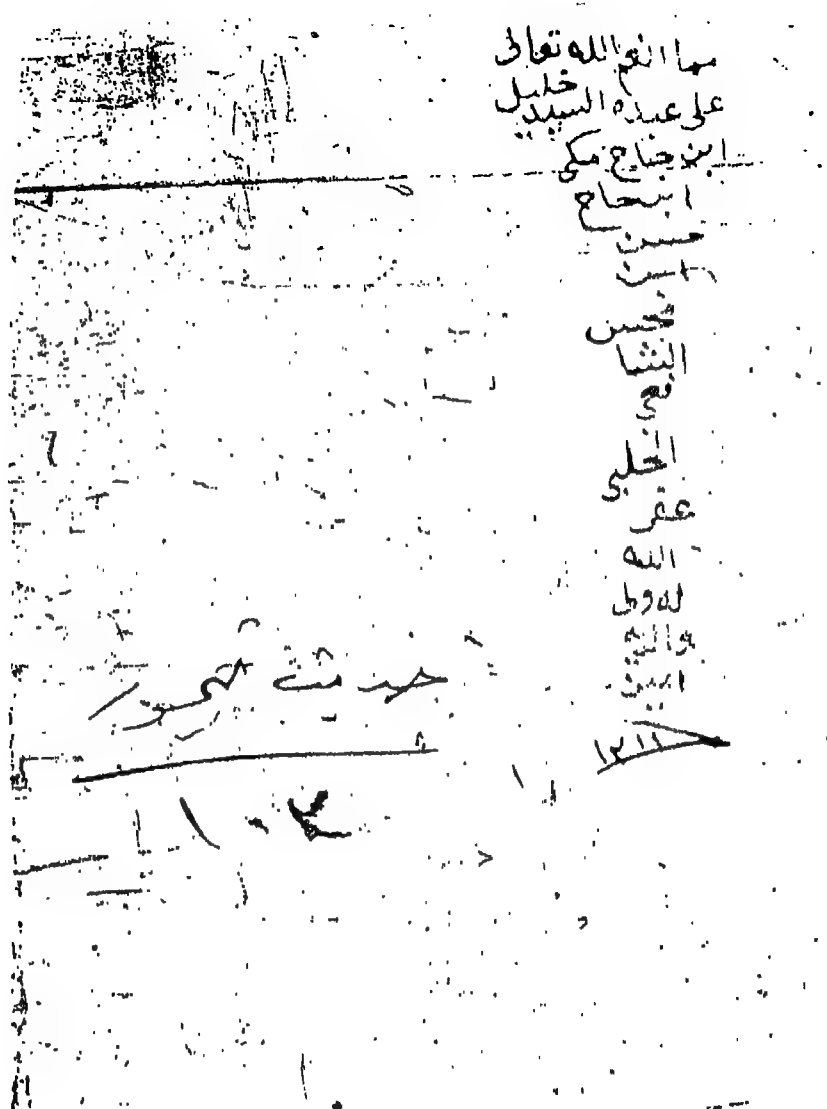 مما انعم الله تعالى
على عبده السيد خليل
ابن حاج مكي
ابن حاج
حسن
ابن
محسن
الشا
فعي
الحلبي
غفر
الله
له ول
والديه
امين
١٢١١
حديث تيمور
١٠٢